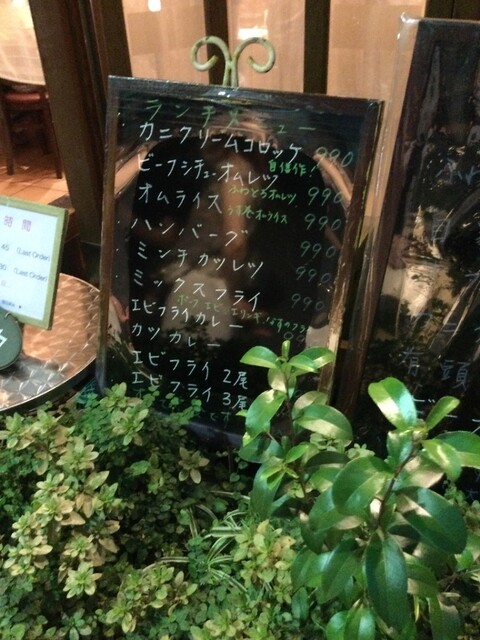 ランチメニュー
カニクリームコロッケ 990
自信作!
ビーフシチューオムレツ 990
ふわとろオムレツ
オムライス 990
うす巻オーライス
ハンバーグ 990
ミンチカツレツ 990
ミックスフライ 990
エビフライカレー
カツカレー 990
エビフライ 2尾
エビフライ 3尾
時間
45 (Last Order)
(Last Order)
有頭